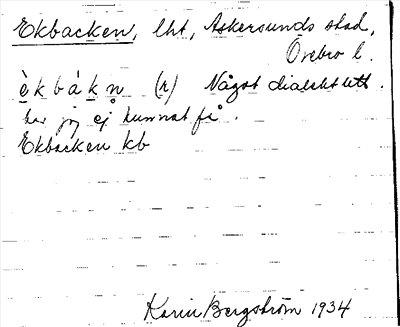 Ekbacken, lht, Askersunds stad,
Örebro l.
è k b á k n (r) Något dialektutt.
har jag ej kunnat få.
Ekbacken kb
Karin Bergström 1934